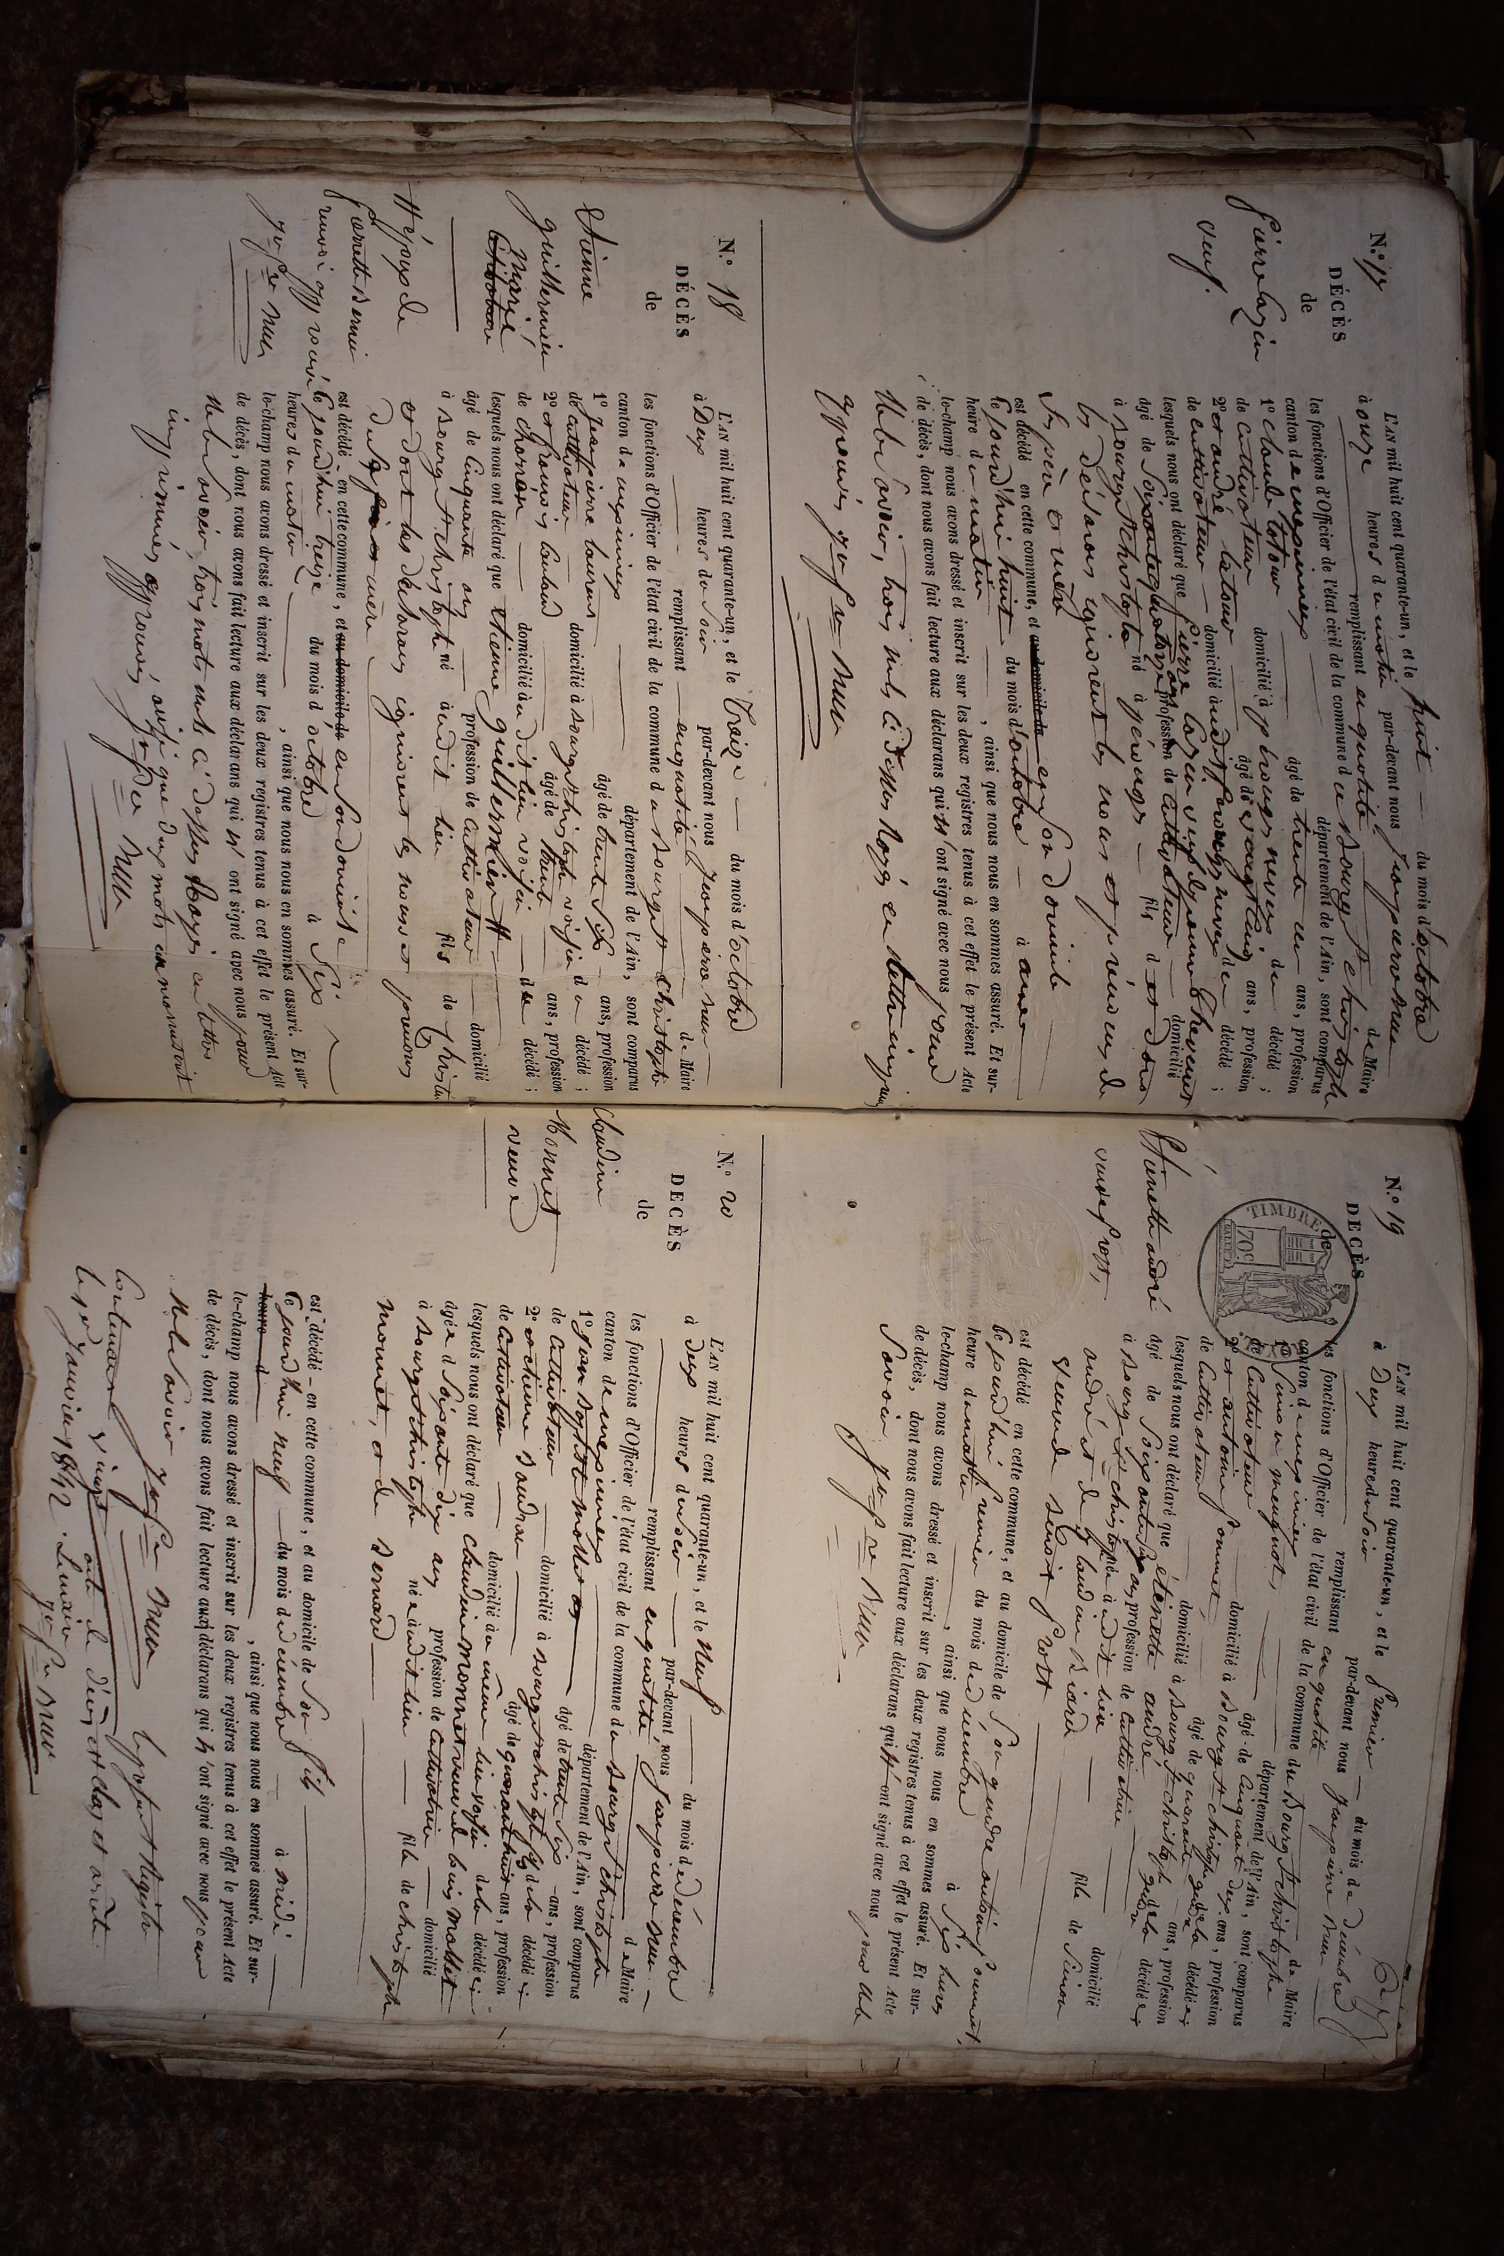 N.° 17
DÉCÈS
de
Pierre Lazin
veuf.
L'AN mil huit cent quarante-un, et le huit du mois d'octobre
à onze heures du matin par-devant nous Jeanpierre Neu
remplissant en qualité de Maire
les fonctions d'Officier de l'état civil de la commune de Bourg St Christophe
canton de Meximieux département de l'Ain, sont comparus
1.° Claude Cotour âgé de trente un ans, profession
de cultivateur domicilié à du décédé ;
2.° et andré Latour âgé de ans, profession
de cultivateur domicilié audit du décédé ;
lesquels nous ont déclaré que Pierre Lazin veuf
âgé de Soixante quatorze ans profession de cultivateur domicilié
à Bourg St Christophe né à pérouges fils d et dont
les déclarans ignorent les noms et prénoms de
Ses père et mère
est décédé en cette commune, et au domicile de en Son domicile
le jourd'hui huit du mois d'octobre à une
heure du matin , ainsi que nous nous en sommes assuré. Et sur-
le-champ nous avons dressé et inscrit sur les deux registres tenus à cet effet le présent Acte
de décès, dont nous avons fait lecture aux déclarans qui n'ont signé avec nous pour
ne le Savoir, trois mots nuls ci dessus Rayés en lettre
approuvés J. P. re Neu
N.° 18
DÉCÈS
de
Etienne
guillermier
Marié
#époux de
pierrette Bernin
renvoi approuvé
J. P. re Neu
L'AN mil huit cent quarante-un, et le Treize du mois d'octobre
à Deux heures du Soir par-devant nous Jeanpierre Neu
remplissant en qualité de Maire
les fonctions d'Officier de l'état civil de la commune de Bourg St Christophe
canton de meximieux département de l'Ain, sont comparus
1.° Jeanpierre Laurent âgé de trente Six ans, profession
de Cultivateur domicilié à Bourg St Christophe voisin du décédé ;
2.° et françois âgé de trente ans, profession
de charron domicilié audit lieu voisin du décédé ;
lesquels nous ont déclaré que Etienne guillermier #
âgé de Cinquante ans profession de Cultivateur domicilié
à Bourg St Christophe né audit lieu fils de christophe
et dont les déclarans ignorent les noms et prénoms
de Sa mère
est décédé en cette commune, et au domicile de en Son domicile
le jourd'hui treize du mois d'octobre à Six
heures du matin , ainsi que nous nous en sommes assuré. Et sur-
le-champ nous avons dressé et inscrit sur les deux registres tenus à cet effet le présent Acte
de décès, dont nous avons fait lecture aux déclarans qui n'ont signé avec nous pour
ne le Savoir, trois mots nuls ci dessus Rayés en lettres
imprimées approuvés, ainsi que deux mots en manuscrit
J. P. re Neu
N.° 19
DÉCÈS
de
Etienette andré
veuve prost,
TIMBRE
70 c
L'AN mil huit cent quarante-un, et le Premier du mois de Décembre
à deux heures du Soir par-devant nous Jeanpierre Neu
remplissant en qualité de Maire
les fonctions d'Officier de l'état civil de la commune de Bourg St Christophe
canton de meximieux département de l'Ain, sont comparus
1.° Simon meugnot, âgé de Cinquante deux ans, profession
de Cultivateur domicilié à Bourg St christophe de la décédée ;
2.° et antoine pommet, âgé de quarante ans, profession
de Cultivateur domicilié à Bourg St christophe gendre de la décédée ;
lesquels nous ont déclaré que etienette andré
âgé de Soixante ans profession de Cultivatrice domicilié
à Bourg St christophe née audit lieu fille de Simon
andré et de Claudine Biard
Veuve de Benoit prost
est décédé en cette commune, et au domicile de Son gendre antoine pommet,
le jourd'hui premier du mois de décembre à Six heures
heure du matin , ainsi que nous nous en sommes assuré. Et sur-
le-champ nous avons dressé et inscrit sur les deux registres tenus à cet effet le présent Acte
de décès, dont nous avons fait lecture aux déclarans qui n'ont signé avec nous pour ne le
Savoir J. P. re Neu
N.° 20
DÉCÈS
de
Claudine
Monnet
veuve
L'AN mil huit cent quarante-un, et le Neuf du mois de décembre
à deux heures du Soir par-devant nous Jeanpierre Neu
remplissant en qualité de Maire
les fonctions d'Officier de l'état civil de la commune de Bourg St Christophe
canton de meximieux département de l'Ain, sont comparus
1.° Jean Baptiste mollet âgé de trente Six ans, profession
de Cultivateur domicilié à Bourg St christophe fils de la décédée ;
2.° et etienne Baudran âgé de quarante huit ans, profession
de Cultivateur domicilié au même lieu voisin de la décédée ;
lesquels nous ont déclaré que Claudine Monnet veuve de Louis mollet
âgée de Soixante dix ans profession de Cultivatrice domicilié
à Bourg St Christophe née audit lieu fille de christophe
monnet, et de Bernard
est décédé en cette commune, et au domicile de Son fils
le jourd'hui neuf du mois de décembre à midi
heure d , ainsi que nous nous en sommes assuré. Et sur-
le-champ nous avons dressé et inscrit sur les deux registres tenus à cet effet le présent Acte
de décès, dont nous avons fait lecture aux déclarans qui n'ont signé avec nous pour
ne le Savoir J. P. re Neu le présent Registre
Contenant vingt acte de décès est clos et arrêté
les Janvier 1842. Le maire
J. P. re Neu